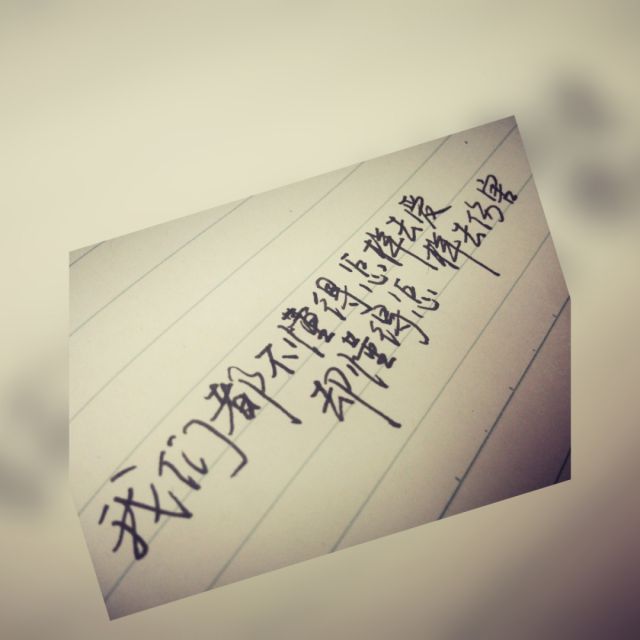 我们都不懂得怎样去爱
却懂得怎样去伤害